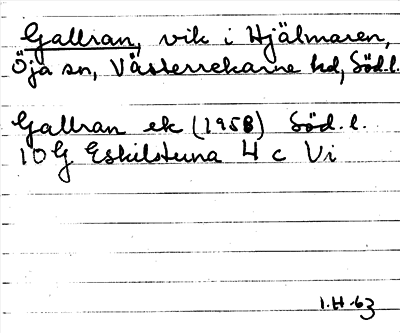 Gallran, vik i Hjälmaren,
Öja sn, Västerrekarne hd, Söd.l.
Gallran ek (1958) Söd.l.
10 G Eskilstuna 4 c Vi
1.H.63